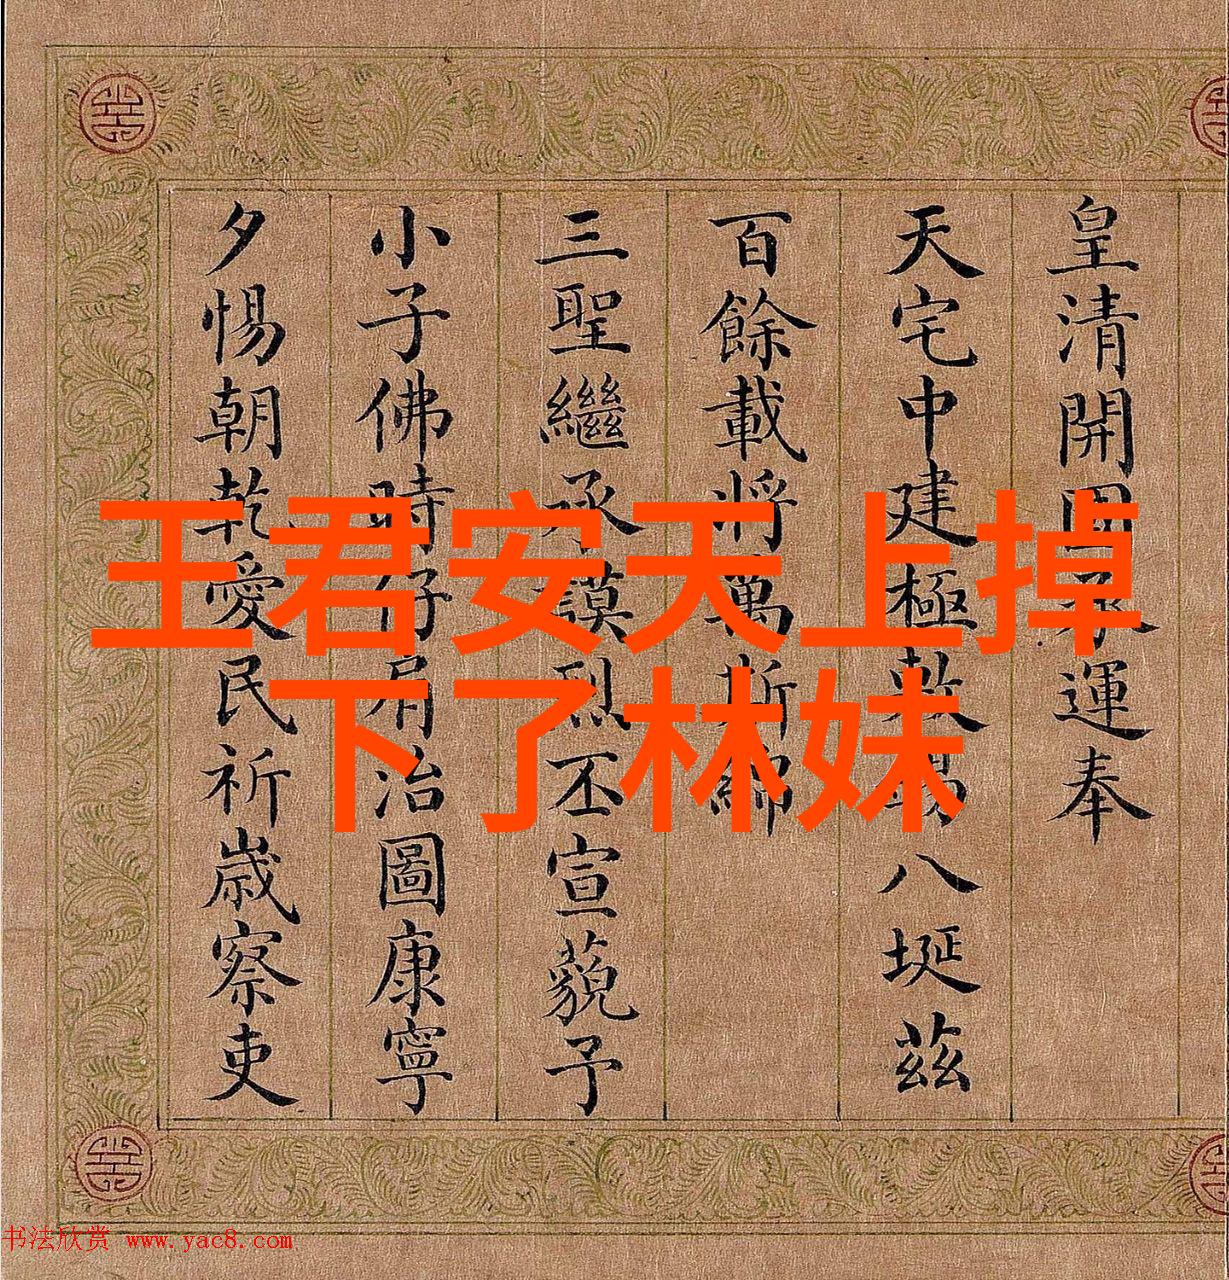 皇清開國承運奉
天宅中建極敷錫八埏茲
百餘載將萬斯綿
三聖繼承謨烈丕宣藐予
小子佛時仔肩治圖康寧
夕惕朝乾愛民祈歲察吏
王君安天上掉
下了林妹
书法欣赏 www.yac8.com